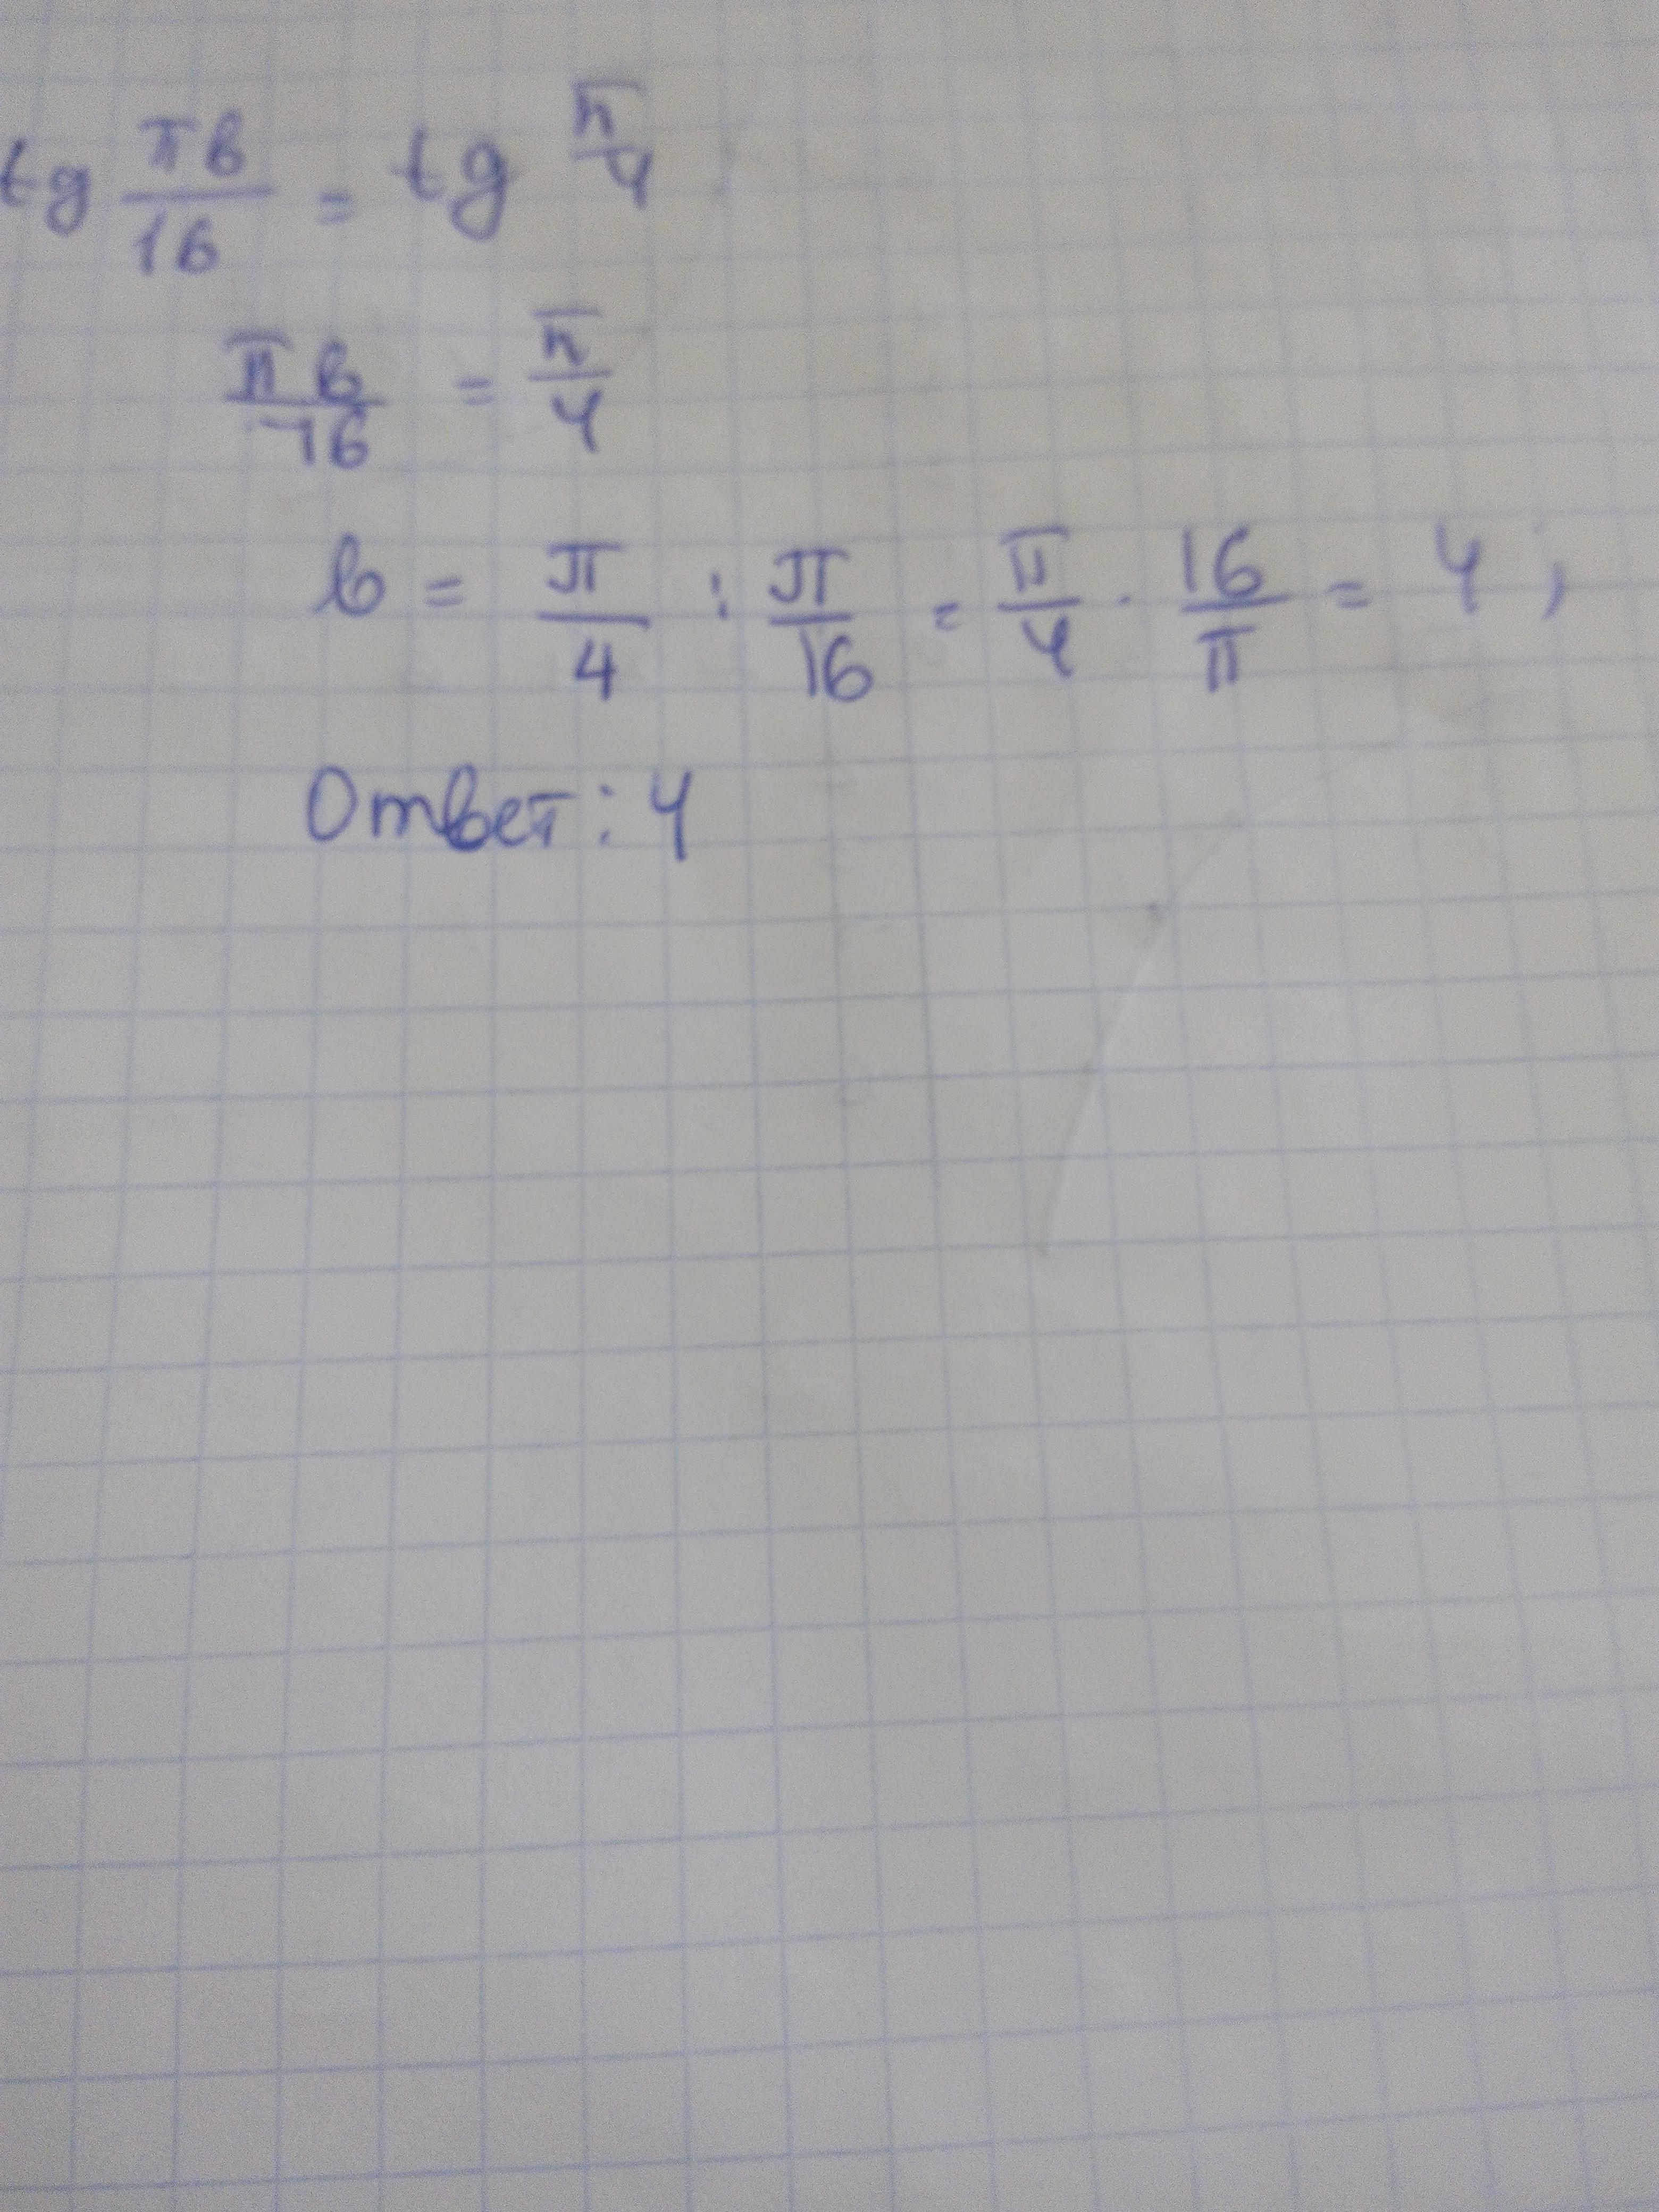 tg πв/16 = tg π/4
πв/16 = π/4
в = π/4 : π/16 = π/4 · 16/π = 4;
Ответ: 4